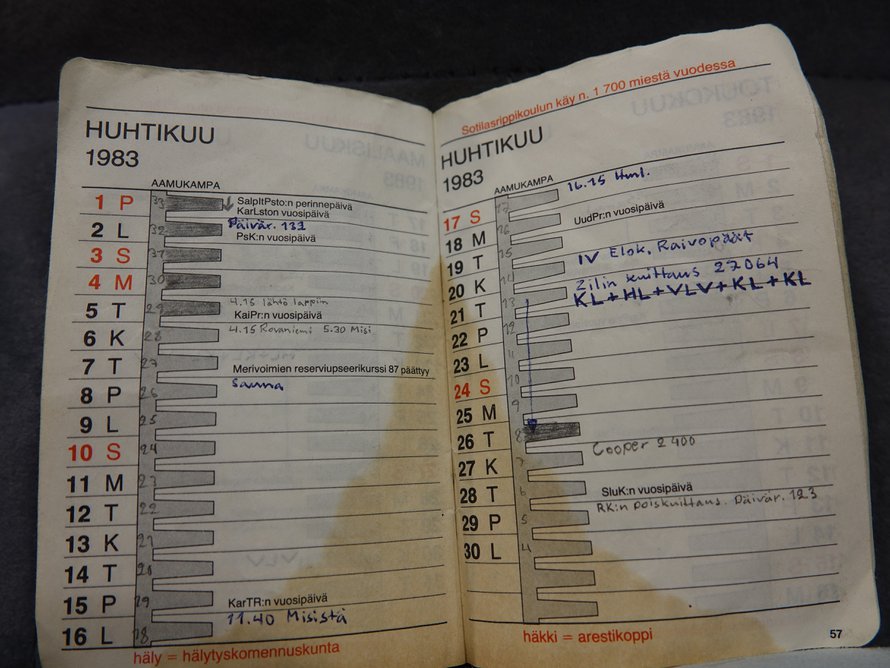 HUHTIKUU
1983
AAMUKAMPA
1 P 33 SalpItPsto:n perinnepäivä
KarLston vuosipäivä
2 L 32 Päivär. 131
PsK:n vuosipäivä
3 S 31
4 M 30
4.15 lähtö lappiin
5 T 29 KaiPr:n vuosipäivä
6 K 28 4.15 Rovaniemi 5.30 Misi
7 T 27 Merivoimien reserviupseerikurssi 87 päättyy
8 P 26 Sauna
9 L 25
10 S 24
11 M 23
12 T 22
13 K 21
14 T 20
15 P 19 KarTR:n vuosipäivä
16 L 18 11.40 Misistä
häly = hälytyskomennuskunta
Sotilasrippikoulun käy n. 1 700 miestä vuodessa
HUHTIKUU
1983
AAMUKAMPA
17 S 16.15 Hml.
18 M 16 UudPr:n vuosipäivä
19 T 15 IV Elok. Raivopäät
20 K 14 Zilin kuittaus 27064
21 T 13 KL+HL+VLV+KL+KL
22 P 12
23 L 11
24 S 10
25 M 9
26 T 8 Cooper 2400
27 K 7
28 T 6 SluK:n vuosipäivä
29 P 5 RK:n poiskuittaus. Päivär. 123
30 L 4
häkki = arestikoppi
57